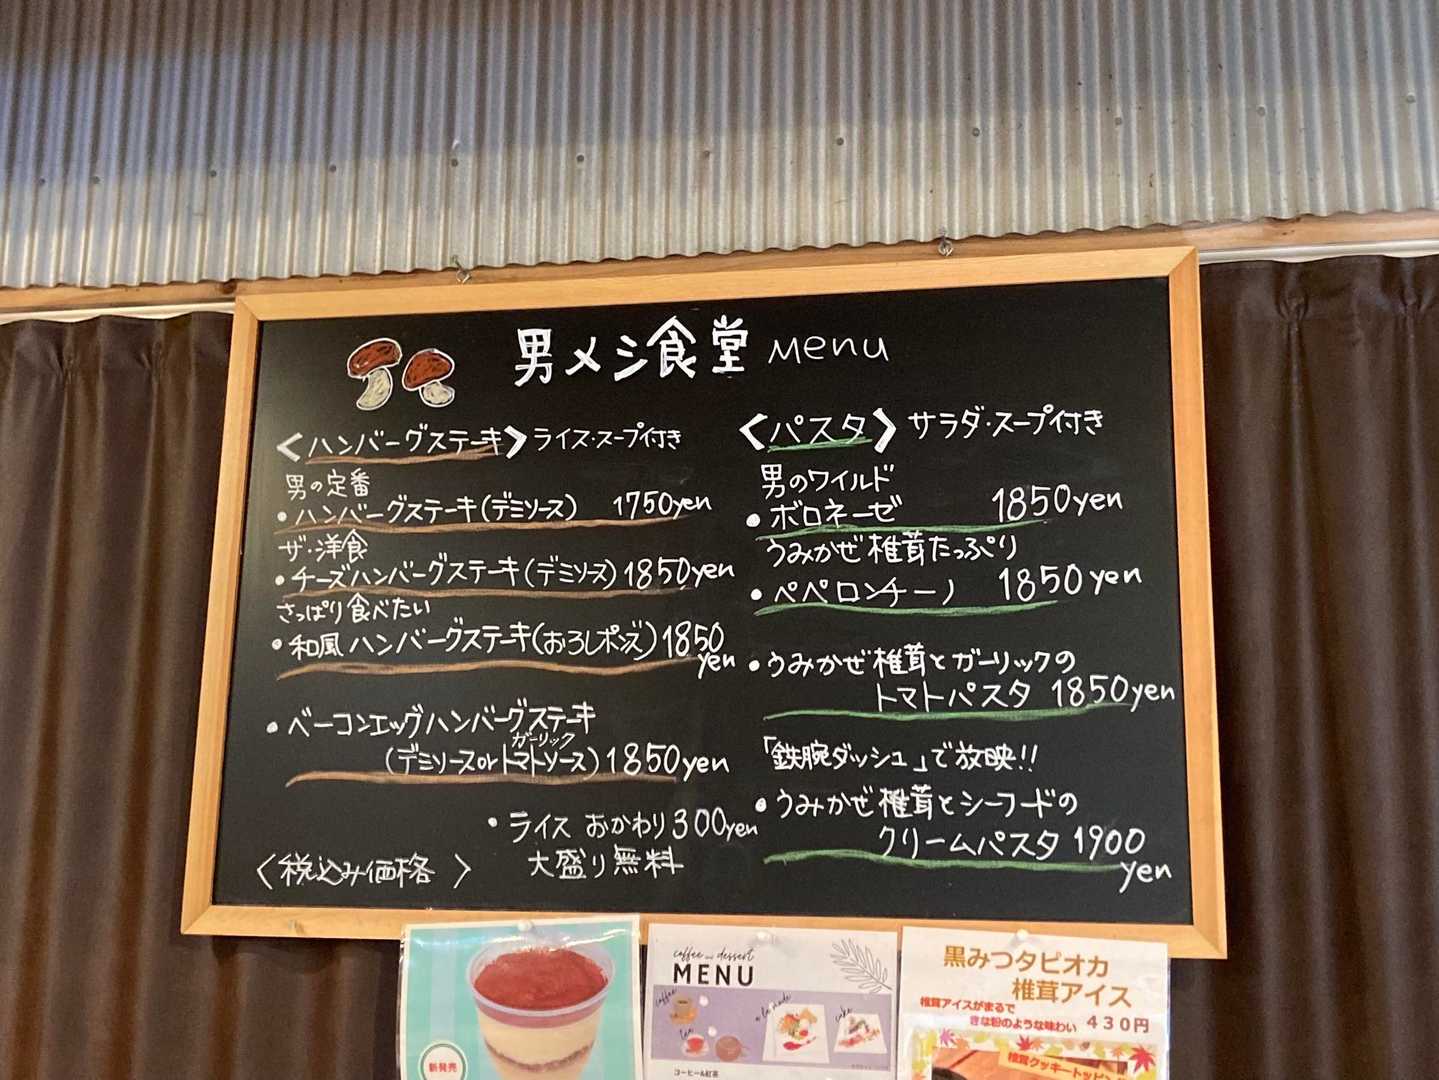 男メシ食堂 Menu
〈ハンバーグステーキ〉ライス・スープ付き
男の定番
・ハンバーグステーキ(デミソース) 1750yen
ザ・洋食
・チーズハンバーグステーキ(デミソース) 1850yen
さっぱり食べたい
・和風ハンバーグステーキ(おろしポンズ) 1850
yen
・ベーコンエッグハンバーグステーキ
ガーリック
(デミソースorトマトソース) 1850yen
・ライス おかわり 300yen
大盛り無料
〈税込み価格 〉
〈パスタ〉 サラダ・スープ付き
男のワイルド
・ボロネーゼ 1850yen
うみかぜ椎茸たっぷり
・ペペロンチーノ 1850yen
・うみかぜ椎茸とガーリックの
トマトパスタ 1850yen
「鉄腕ダッシュ」で放映!!
・うみかぜ椎茸とシーフードの
クリームパスタ 1900
yen
新発売
coffee and dessert
MENU
coffee
tea
a la mode
cake
コーヒー&紅茶
黒みつタピオカ
椎茸アイス
椎茸アイスがまるで
きな粉のような味わい 430円
椎茸クッキートッピング